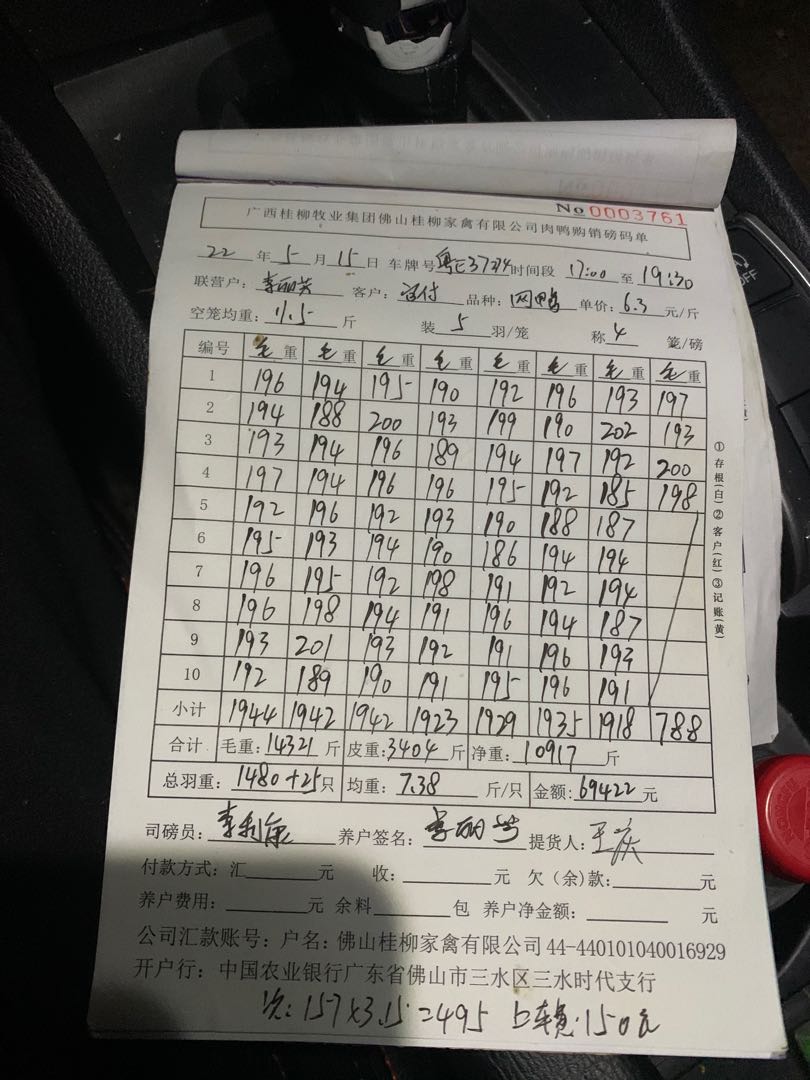 No 0003761
广西桂柳牧业集团佛山桂柳家禽有限公司肉鸭购销磅码单
22 年 5 月 15 日 车牌号 时间段 17:00 至 19:30
联营户: 李丽芳 客户: 品种: 单价: 6.3 元/斤
空笼均重: 11.5 斤 装 5 羽/笼 称 4 笼/磅
编号 毛重 毛重 毛重 毛重 毛重 毛重 毛重 毛重
1 196 194 195 190 192 196 193 197
2 194 188 200 193 199 190 202 193
3 193 194 196 189 194 197 192 200
4 197 194 196 196 195 192 185 198
5 192 196 192 193 190 188 187
6 195 193 194 190 186 194 194
7 196 195 192 198 191 192 194
8 196 198 194 191 196 194 187
9 193 201 193 192 191 196 193
10 192 189 190 191 195 196 191
小计 1944 1942 1942 1923 1929 1935 1918 788
合计 毛重: 14321 斤 皮重: 3404 斤 净重: 10917 斤
总羽重: 1480+25 只 均重: 7.38 斤/只 金额: 69422 元
①存根(白)②客户(红)③记账(黄)
司磅员: 养户签名: 李丽芳 提货人: 王庆
付款方式: 汇 元 收: 元 欠(余)款: 元
养户费用: 元 余料 包 养户净金额: 元
公司汇款账号: 户名: 佛山桂柳家禽有限公司 44-440101040016929
开户行: 中国农业银行广东省佛山市三水区三水时代支行
次: 157×3.15=2495 上车费: 150元
OFF